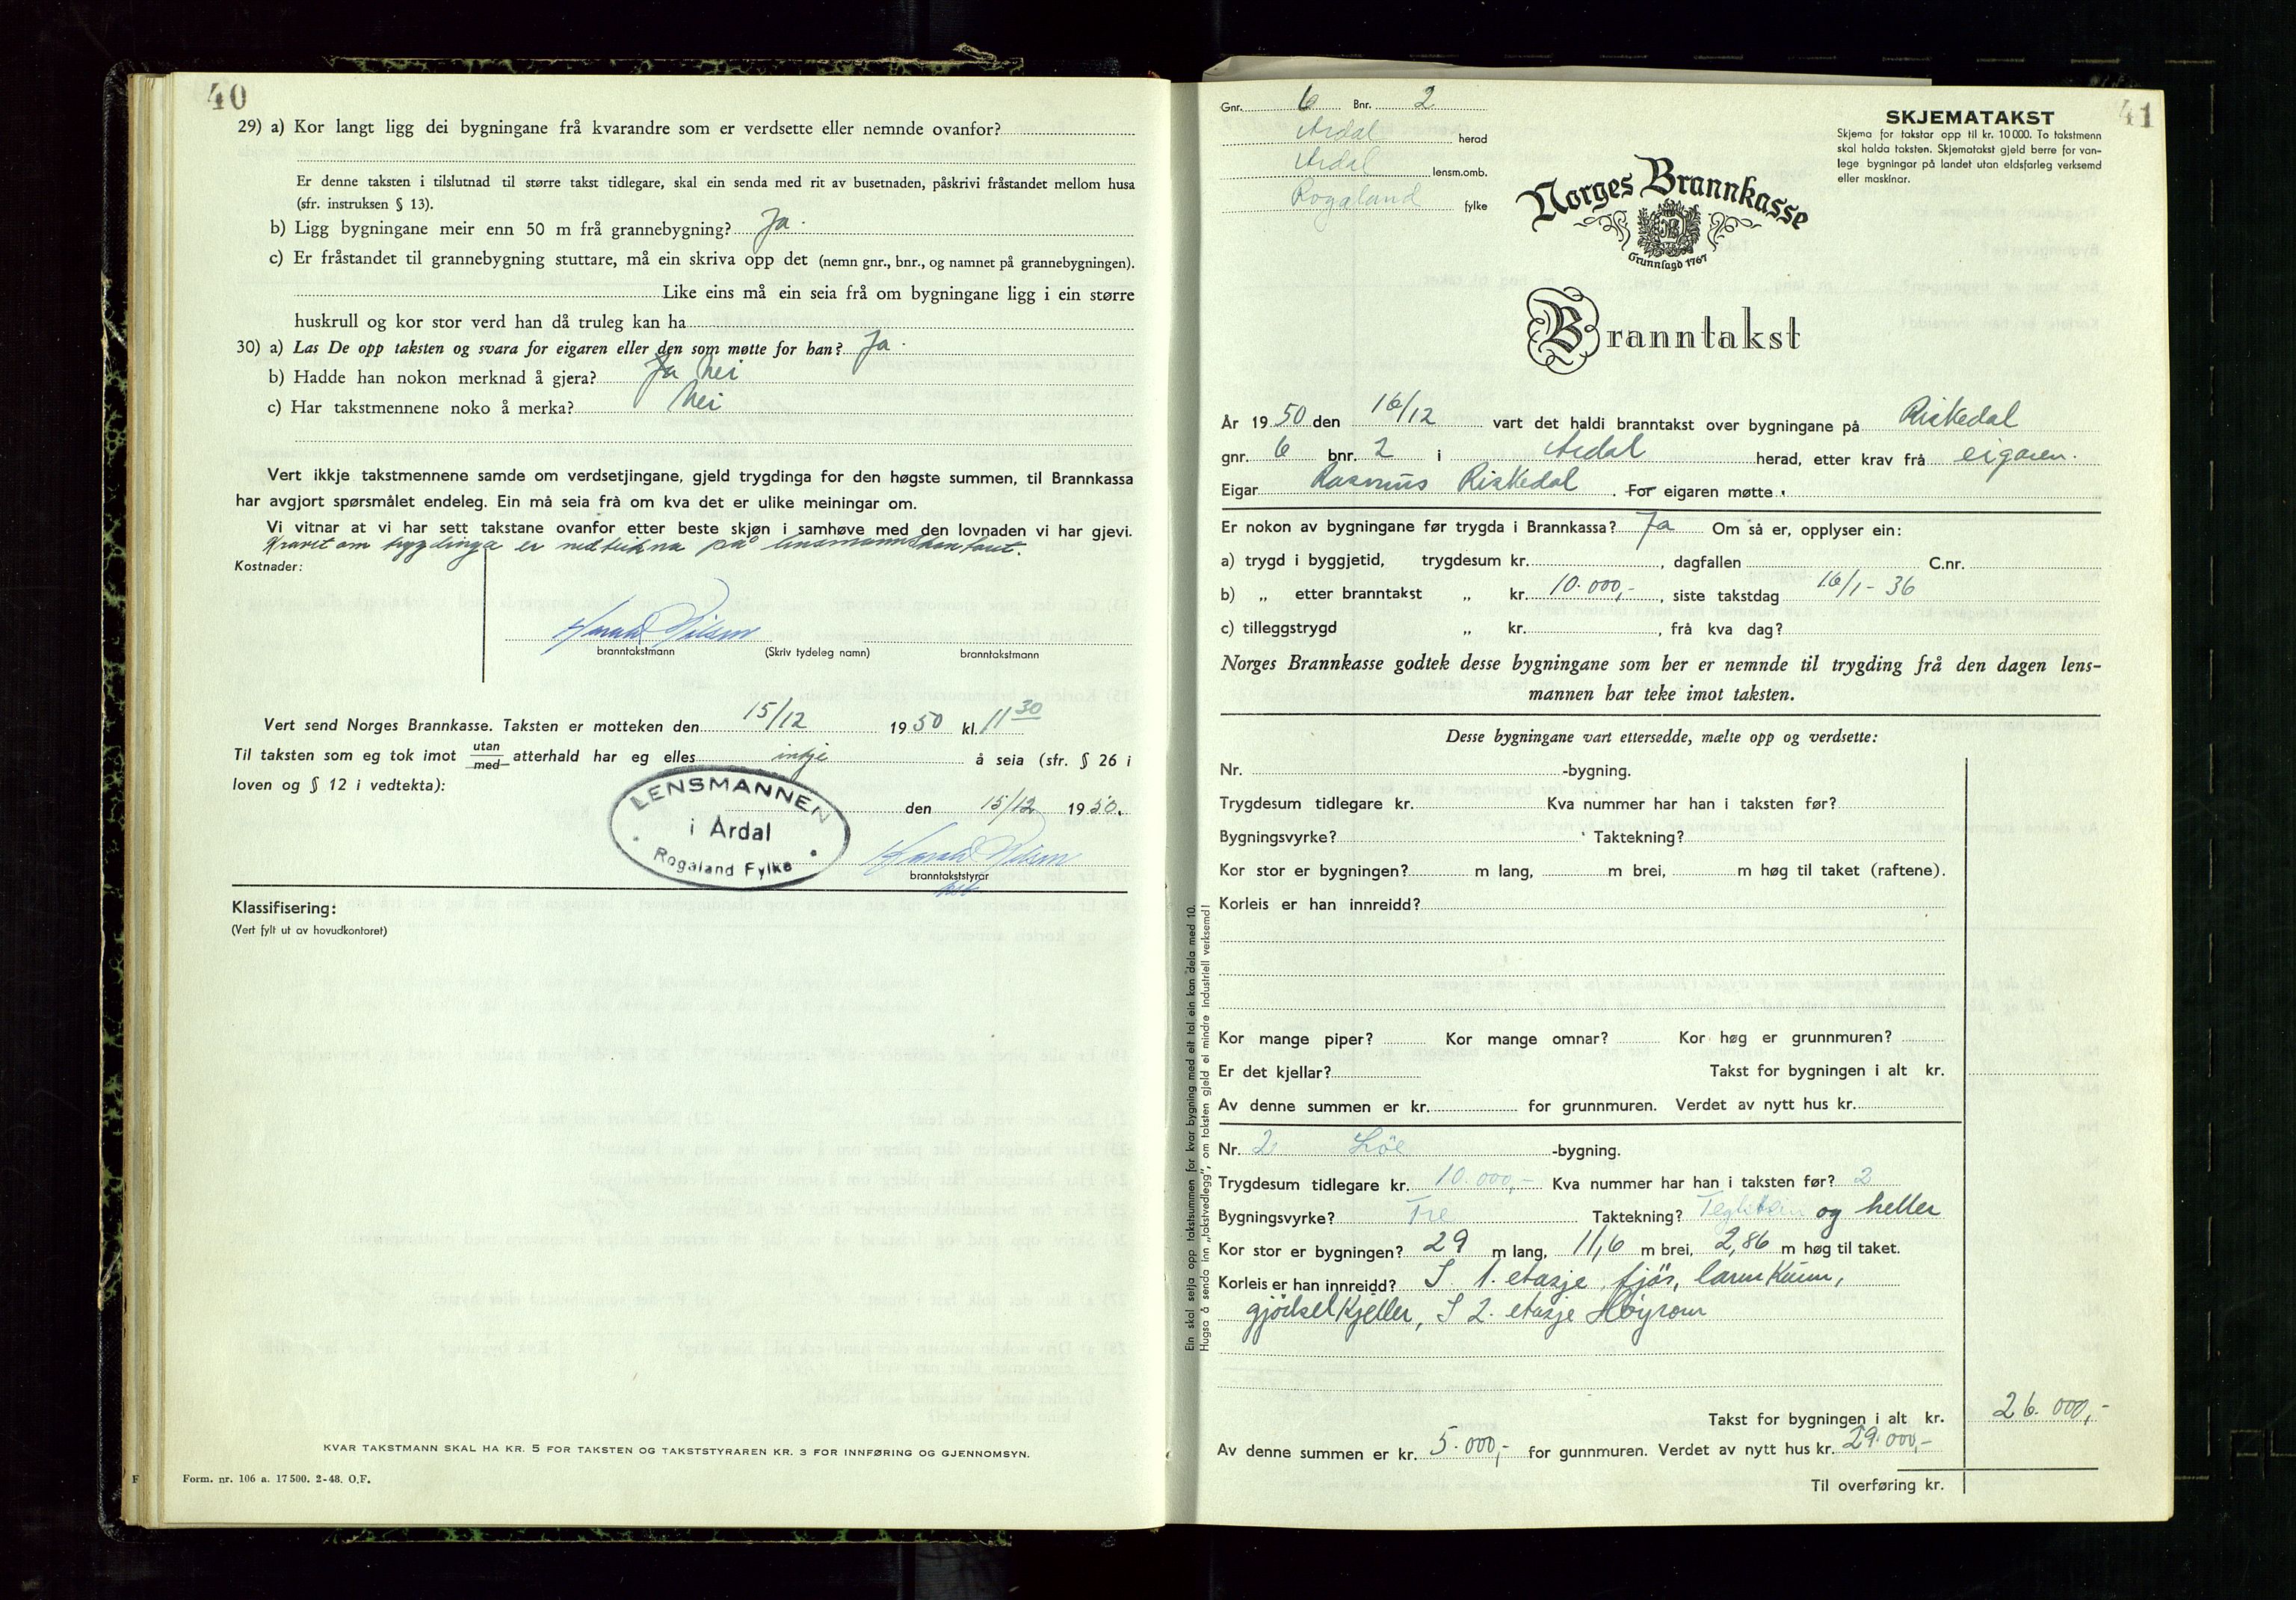 40
29) a) Kor langt ligg dei bygningane frå kvarandre som er verdsette eller nemnde ovanfor?
Er denne taksten i tilslutnad til større takst tidlegare, skal ein senda med rit av busetnaden, påskrivi fråstandet mellom husa
(sfr. instruksen § 13).
b) Ligg bygningane meir enn 50 m frå grannebygning? Ja.
c) Er fråstandet til grannebygning stuttare, må ein skriva opp det (nemn gnr., bnr., og namnet på grannebygningen).
Like eins må ein seia frå om bygningane ligg i ein større
huskrull og kor stor verd han då truleg kan ha
30) a) Las De opp taksten og svara for eigaren eller den som møtte for han? Ja.
b) Hadde han nokon merknad å gjera? Ja Nei
c) Har takstmennene noko å merka? Nei
Vert ikkje takstmennene samde om verdsetjingane, gjeld trygdinga for den høgste summen, til Brannkassa
har avgjort spørsmålet endeleg. Ein må seia frå om kva det er ulike meiningar om.
Vi vitnar at vi har sett takstane ovanfor etter beste skjøn i samhøve med den lovnaden vi har gjevi.
Kravet om trygdinga er nedteikna på lensmannskontoret.
Kostnader:
Harald Nilsen
branntakstmann (Skriv tydeleg namn) branntakstmann
Vert send Norges Brannkasse. Taksten er motteken den 15/12 1950 kl. 11 30
Til taksten som eg tok imot utan/med atterhald har eg elles inkje å seia (sfr. § 26 i
loven og § 12 i vedtekta):
LENSMANNEN
i Årdal
Rogaland Fylke
den 15/12 1950.
Harald Nilsen
branntakststyrar
Klassifisering:
(Vert fylt ut av hovudkontoret)
KVAR TAKSTMANN SKAL HA KR. 5 FOR TAKSTEN OG TAKSTSTYRAREN KR. 3 FOR INNFØRING OG GJENNOMSYN.
F Form. nr. 106 a. 17 500. 2-48. O.F.
41
Gnr. 6 Bnr. 2
Årdal herad
Årdal lensm.omb.
Rogaland fylke
SKJEMATAKST
Skjema for takstar opp til kr. 10 000. To takstmenn
skal halda taksten. Skjematakst gjeld berre for van-
lege bygningar på landet utan eldsfarleg verksemd
eller maskinar.
Norges Brannkasse
Grunnlagd 1767
Branntakst
År 1950 den 16/12 vart det haldi branntakst over bygningane på Riskedal
gnr. 6 bnr. 2 i Årdal herad, etter krav frå eigaren.
Eigar Rasmus Riskedal. For eigaren møtte
Er nokon av bygningane før trygda i Brannkassa? Ja Om så er, opplyser ein:
a) trygd i byggjetid, trygdesum kr. , dagfallen C.nr.
b) „ etter branntakst „ kr. 10.000,- , siste takstdag 16/1-36
c) tilleggstrygd „ kr. , frå kva dag?
Norges Brannkasse godtek desse bygningane som her er nemnde til trygding frå den dagen lens-
mannen har teke imot taksten.
Desse bygningane vart ettersedde, mælte opp og verdsette:
Nr. -bygning.
Trygdesum tidlegare kr. Kva nummer har han i taksten før?
Bygningsvyrke? Taktekning?
Kor stor er bygningen? m lang, m brei, m høg til taket (raftene).
Korleis er han innreidd?
Kor mange piper? Kor mange omnar? Kor høg er grunnmuren?
Er det kjellar? Takst for bygningen i alt kr.
Av denne summen er kr. for grunnmuren. Verdet av nytt hus kr.
Nr. 2 Löe -bygning.
Trygdesum tidlegare kr. 10.000,- Kva nummer har han i taksten før? 2
Bygningsvyrke? Tre Taktekning? Teglstein og heller
Kor stor er bygningen? 29 m lang, 11,6 m brei, 2,86 m høg til taket.
Korleis er han innreidd? I 1. etasje fjös,
gjödselkjeller, I 2. etasje Höyrom
Takst for bygningen i alt kr. 26.000,-
Av denne summen er kr. 5.000,- for gunnmuren. Verdet av nytt hus kr. 29.000,-
Til overføring kr.
Ein skal setja opp takstsummen for kvar bygning med eit tal ein kan dela med 10.
Hugsa å senda inn „takstvedlegg”, om taksten gjeld ei mindre industriell verksemd!